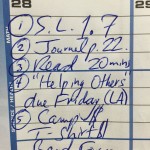 28
29
① S.L. 1.7
② Journal p.22
③ Read 20 mins
④ "Helping Others"
due Friday (LA)
⑤ Camp $
T-shirt